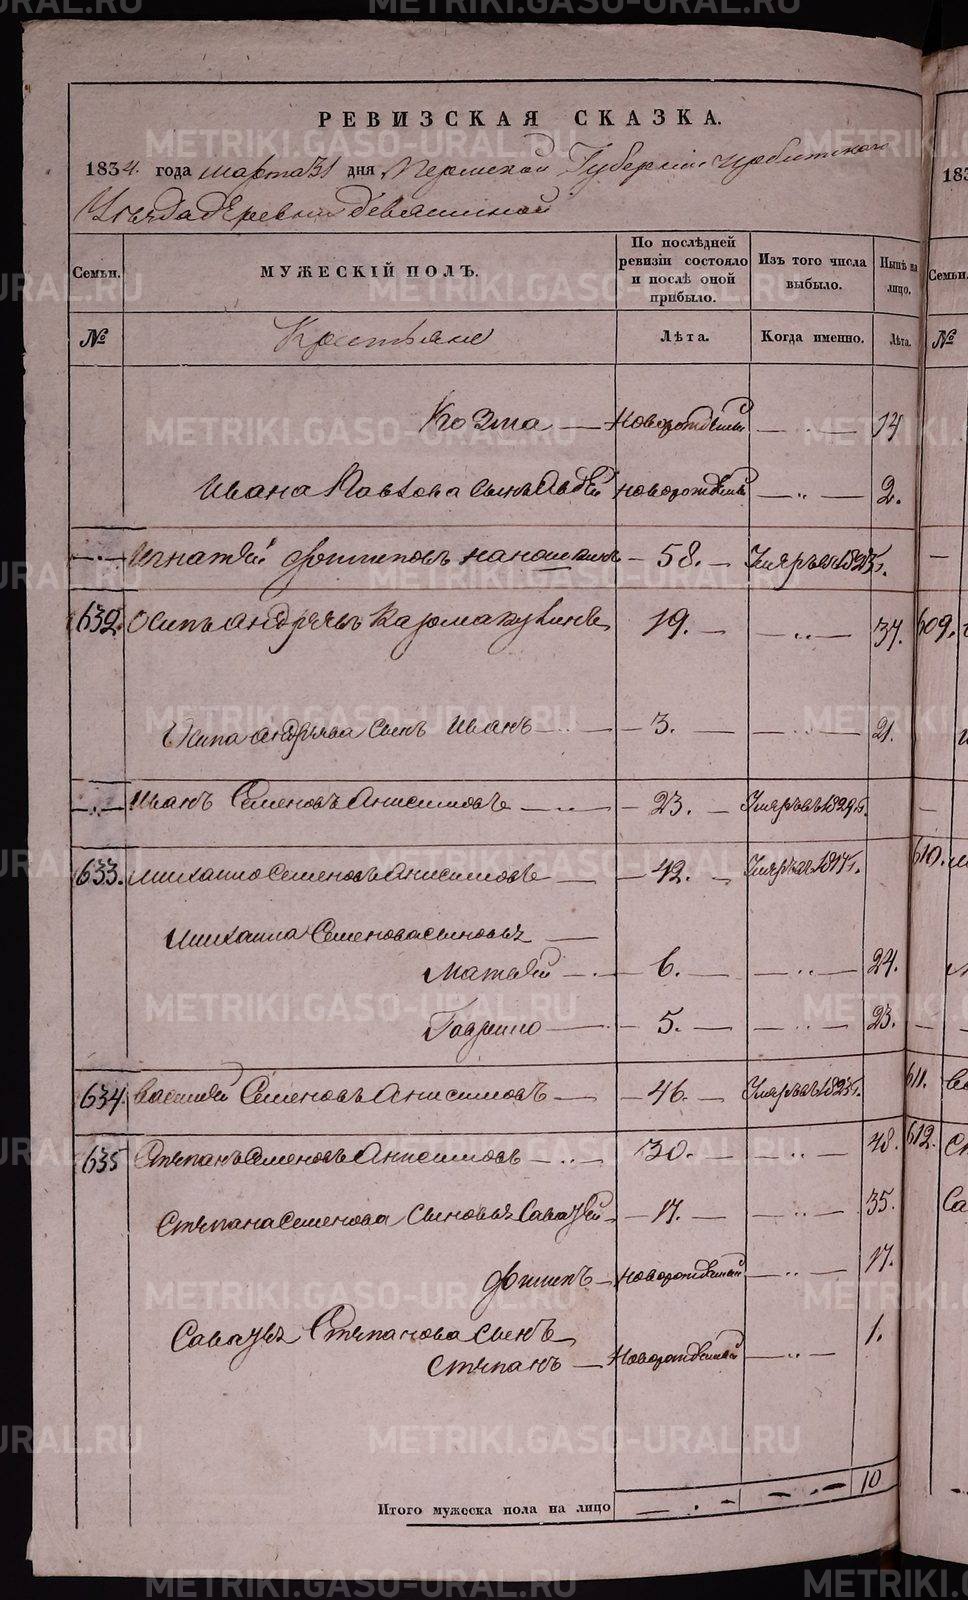 РЕВИЗСКАЯ СКАЗКА.
1834. года марта 31 дня Пермской Губернии Ирбитскаго
Уезда деревни Девяшиной
Семьи. МУЖЕСКІЙ ПОЛЪ. По послѣдней ревизіи состояло и послѣ оной прибыло. Изъ того числа выбыло. Нынѣ на лицо. Семьи.
№ Крестьяне Лѣта. Когда именно. Лѣта. №
Козма — новорожденный — „ — 14
Ивана сынъ Авдей новорожденный — „ — 2.
Игнатей Филиповъ — 58. — Умре въ 1825 г.
632. Осипъ Андреевъ 19. — — „ — 34. 609.
Осипа Андреева сынъ Иванъ — 3. — „ — 21.
Иванъ Семеновъ Анисимовъ — 23. — Умре въ 1829 г.
633. Михайло Семеновъ Анисимовъ — 42. — Умре въ 610.
Михаила Семенова сыновья
Матвей — 6. — — „ — 24.
Гаврило — 5. — — „ — 23.
634. Василей Семеновъ Анисимовъ — 46. — Умре въ 1825 г. 611.
635 Степанъ Семеновъ Анисимовъ — 30. — — „ — 48. 612.
Степана Семенова сыновья Савватей — 17. — — „ — 35.
Филипъ — новорожденный — „ — 17.
Савватея Степанова сынъ
Степанъ — новорожденный — „ — 1.
Итого мужеска пола на лицо — „ — — „ — 10
METRIKI.GASO-URAL.RU